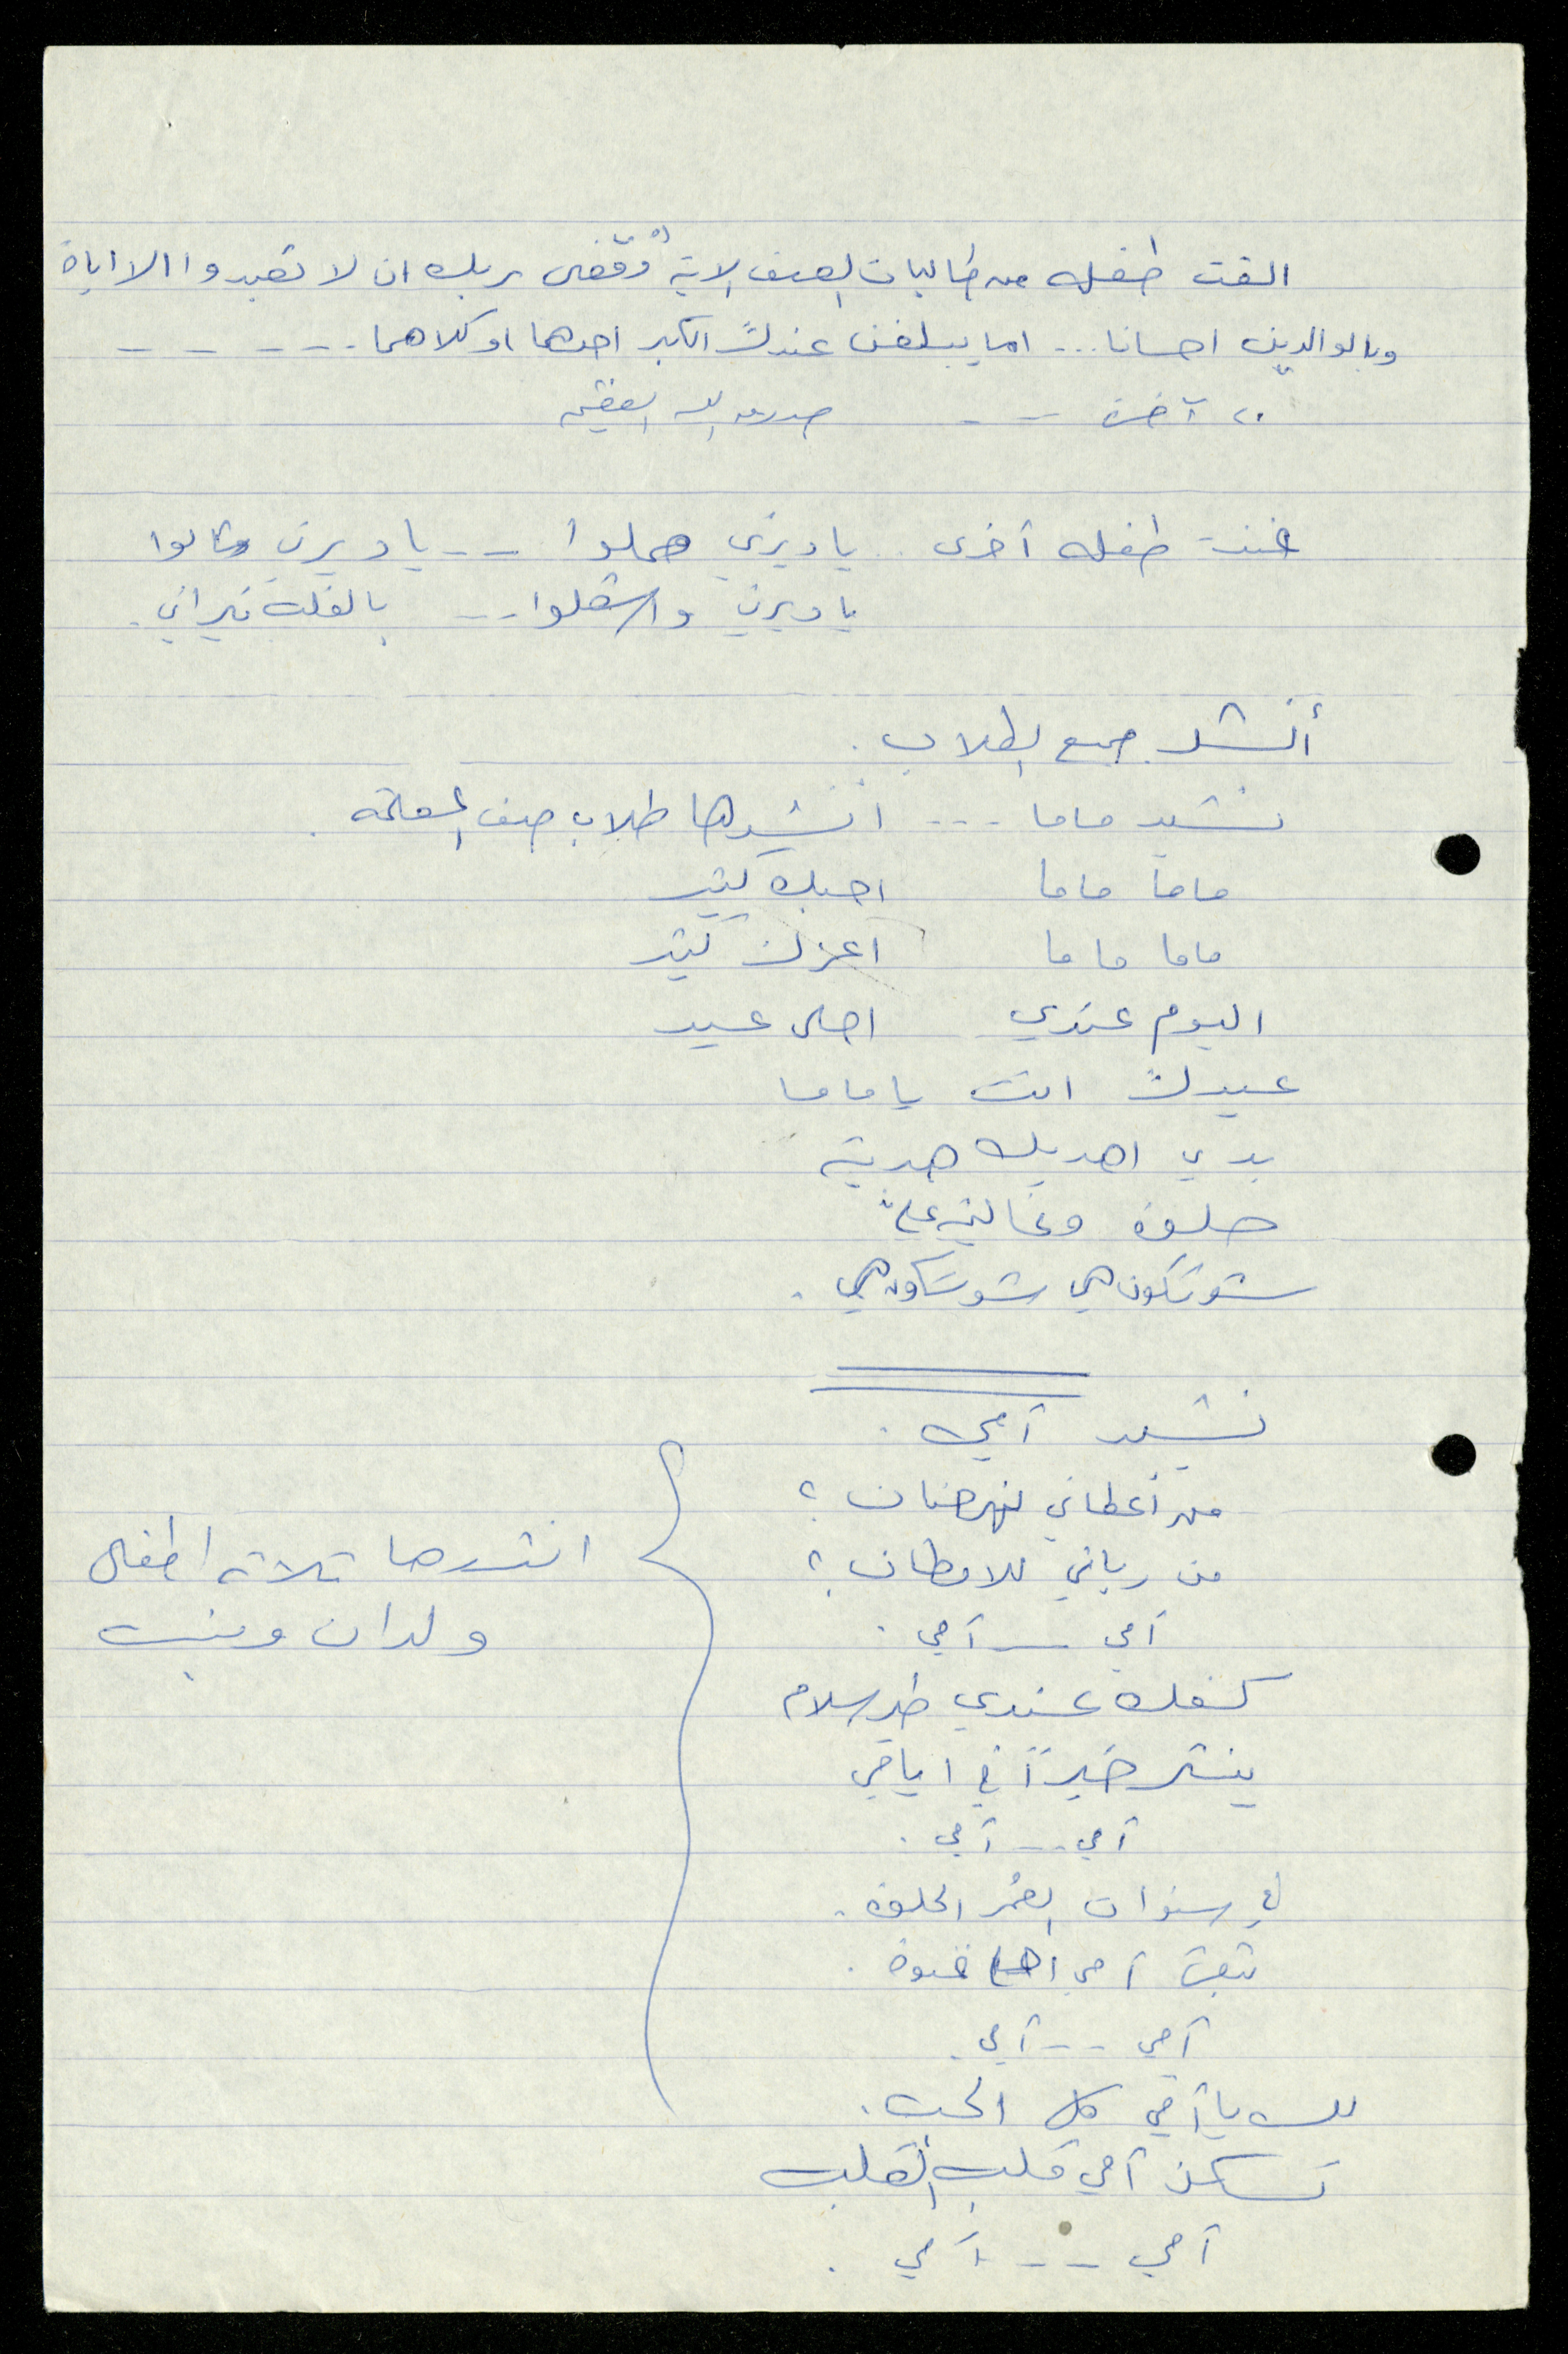 القت طفله من طالبات الصف الاية "وقضى ربك ان لا تعبدوا الا اياه
وبالوالدين احسانا... اما يبلغن عندك الكبر احدهما او كلاهما. - - - - -
آخره - - صدق الله العظيم
غنت طفله أخرى .. يا ديرتي هملوا -- يا ديرتي وشالوا
يا ديرتي واشعلوا -- بالغلة نيراني.
أنشد جميع الطلاب.
نشيد ماما --- انشدها طلاب صف المعلمة.
ماما ماما احبك كثير
ماما ماما اعزك كثير
اليوم عندي احلى عيد
عيدك انت يا ماما
بدي اهديك هدية
حلوة وغالية عليّ
شو تكون هي شو تكون هي.
نشيد أمي.
من أعطاني نهر حنان؟
من رباني للاوطان؟
أمي -- أمي.
كفك عندي طير سلام
ينشر خيراً في ايامي
أمي -- أمي.
في سنوات العمر الحلوة.
تبقى أمي احلى غنوة.
أمي -- أمي.
لك يا أمي كل الحب.
تسكن أمي قلب القلب
أمي -- أمي.
انشدها ثلاثة اطفال
ولدان وبنت